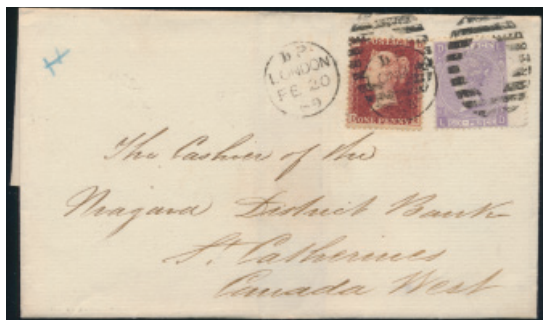 LONDON
FE 20
ONE PENNY
The Cashier of the
Niagara District Bank
St Catherines
Canada West